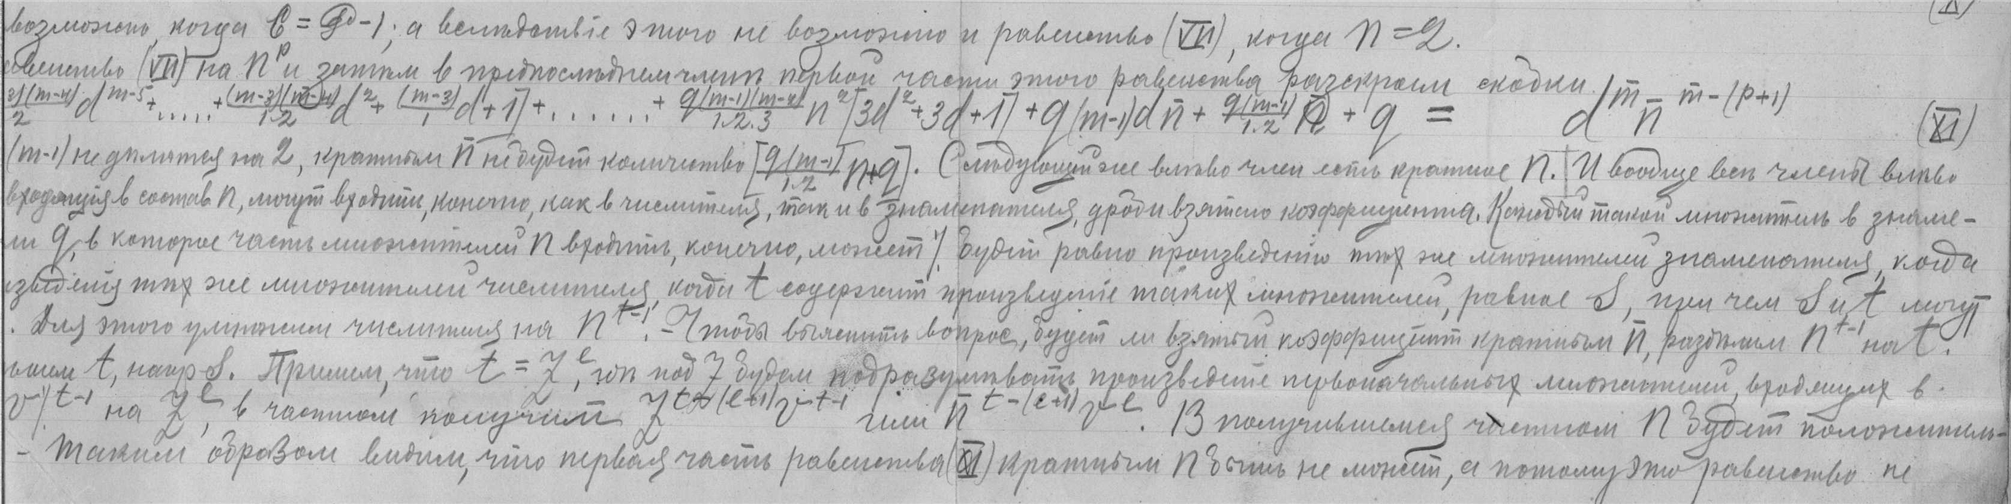 возможно, когда C = d^p - 1; а вследствіе этого не возможно и равенство (VII), когда n = 2.
авенство (VII) на n^p и затѣм в предпослѣднем членѣ первой части этого равенства раскроем скобки.
(m-4)/2 d^{m-5} + ..... + (m-3)(m-4)/1.2 d^2 + (m-3)/1 d + 1] + ...... + q(m-1)(m-2)/1.2.3 n^2 [3d^2 + 3d + 1] + q(m-1)dn + q(m-1)/1.2 n + q = d^m n^{m-(p+1)} (XI)
(m-1) не дѣлятся на 2, кратным n не будет количество [q(m-1)/1.2 n + q]. Слѣдующій же влѣво член есть кратное n. И вообще всѣ члены влѣво
входящія в состав n, могут входить, конечно, как в числителя, так и в знаменателя, дроби взятаго коэффиціента. Каждый такой множитель в знаме-
ли q, в которое часть множителей n входить, конечно, может). будет равно произведенію тѣх же множителей знаменателя, когда
изведенія тѣх же множителей числителя, когда t содержит произведеніе таких множителей, равное S, при чем S и t могут
. Для этого умножим числителя на n^{t-1}. - Чтобы выяснить вопрос, будет ли взятый коэффиціент кратным n, раздѣлим n^{t-1} на t.
t, напр S. Примем, что t = z^e, гдѣ под z будем подразумѣвать произведеніе первоначальных множителей, входящих в
v)^{t-1} на z^e, в частном получим z^{t-(e+1)} v^{t-1} или n^{t-(e+1)} v^e. В получившемся частном n будет положитель-
- Таким образом видим, что первая часть равенства (XI) кратным n быть не может, а потому это равенство не